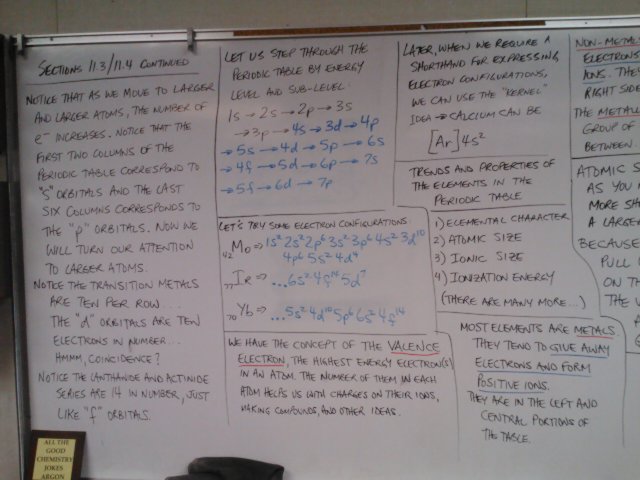 SECTIONS 11.3/11.4 CONTINUED
NOTICE THAT AS WE MOVE TO LARGER
AND LARGER ATOMS, THE NUMBER OF
e⁻ INCREASES. NOTICE THAT THE
FIRST TWO COLUMNS OF THE
PERIODIC TABLE CORRESPOND TO
"S" ORBITALS AND THE LAST
SIX COLUMNS CORRESPONDS TO
THE "P" ORBITALS. NOW WE
WILL TURN OUR ATTENTION
TO LARGER ATOMS.
NOTICE THE TRANSITION METALS
ARE TEN PER ROW...
THE "d" ORBITALS ARE TEN
ELECTRONS IN NUMBER...
HMMM, COINCIDENCE?
NOTICE THE LANTHANIDE AND ACTINIDE
SERIES ARE 14 IN NUMBER, JUST
LIKE "f" ORBITALS.
ALL THE
GOOD
CHEMISTRY
JOKES
ARGON
LET US STEP THROUGH THE
PERIODIC TABLE BY ENERGY
LEVEL AND SUB-LEVEL:
1s → 2s → 2p → 3s
→ 3p → 4s → 3d → 4p
→ 5s → 4d → 5p → 6s
→ 4f → 5d → 6p → 7s
→ 5f → 6d → 7p
LET'S TRY SOME ELECTRON CONFIGURATIONS:
₄₂Mo ⇒ 1s² 2s² 2p⁶ 3s² 3p⁶ 4s² 3d¹⁰
4p⁶ 5s² 4d⁴
₇₇Ir ⇒ ...6s² 4f¹⁴ 5d⁷
₇₀Yb ⇒ ...5s² 4d¹⁰ 5p⁶ 6s² 4f¹⁴
WE HAVE THE CONCEPT OF THE VALENCE
ELECTRON, THE HIGHEST ENERGY ELECTRON(S)
IN AN ATOM. THE NUMBER OF THEM IN EACH
ATOM HELPS US WITH CHARGES ON THEIR IONS,
MAKING COMPOUNDS, AND OTHER IDEAS.
LATER, WHEN WE REQUIRE A
SHORTHAND FOR EXPRESSING
ELECTRON CONFIGURATIONS,
WE CAN USE THE "KERNEL"
IDEA → CALCIUM CAN BE
[Ar] 4s²
TRENDS AND PROPERTIES OF
THE ELEMENTS IN THE
PERIODIC TABLE
1) ELEMENTAL CHARACTER
2) ATOMIC SIZE
3) IONIC SIZE
4) IONIZATION ENERGY
(THERE ARE MANY MORE...)
MOST ELEMENTS ARE METALS
THEY TEND TO GIVE AWAY
ELECTRONS AND FORM
POSITIVE IONS.
THEY ARE IN THE LEFT AND
CENTRAL PORTIONS OF
THE TABLE.
NON-METALS
ELECTRONS
IONS. THEY
RIGHT SIDE
THE METALL
GROUP OF
BETWEEN.
ATOMIC S
AS YOU
MORE SH
A LARGE
BECAUSE
PULL
ON TH
THE
A